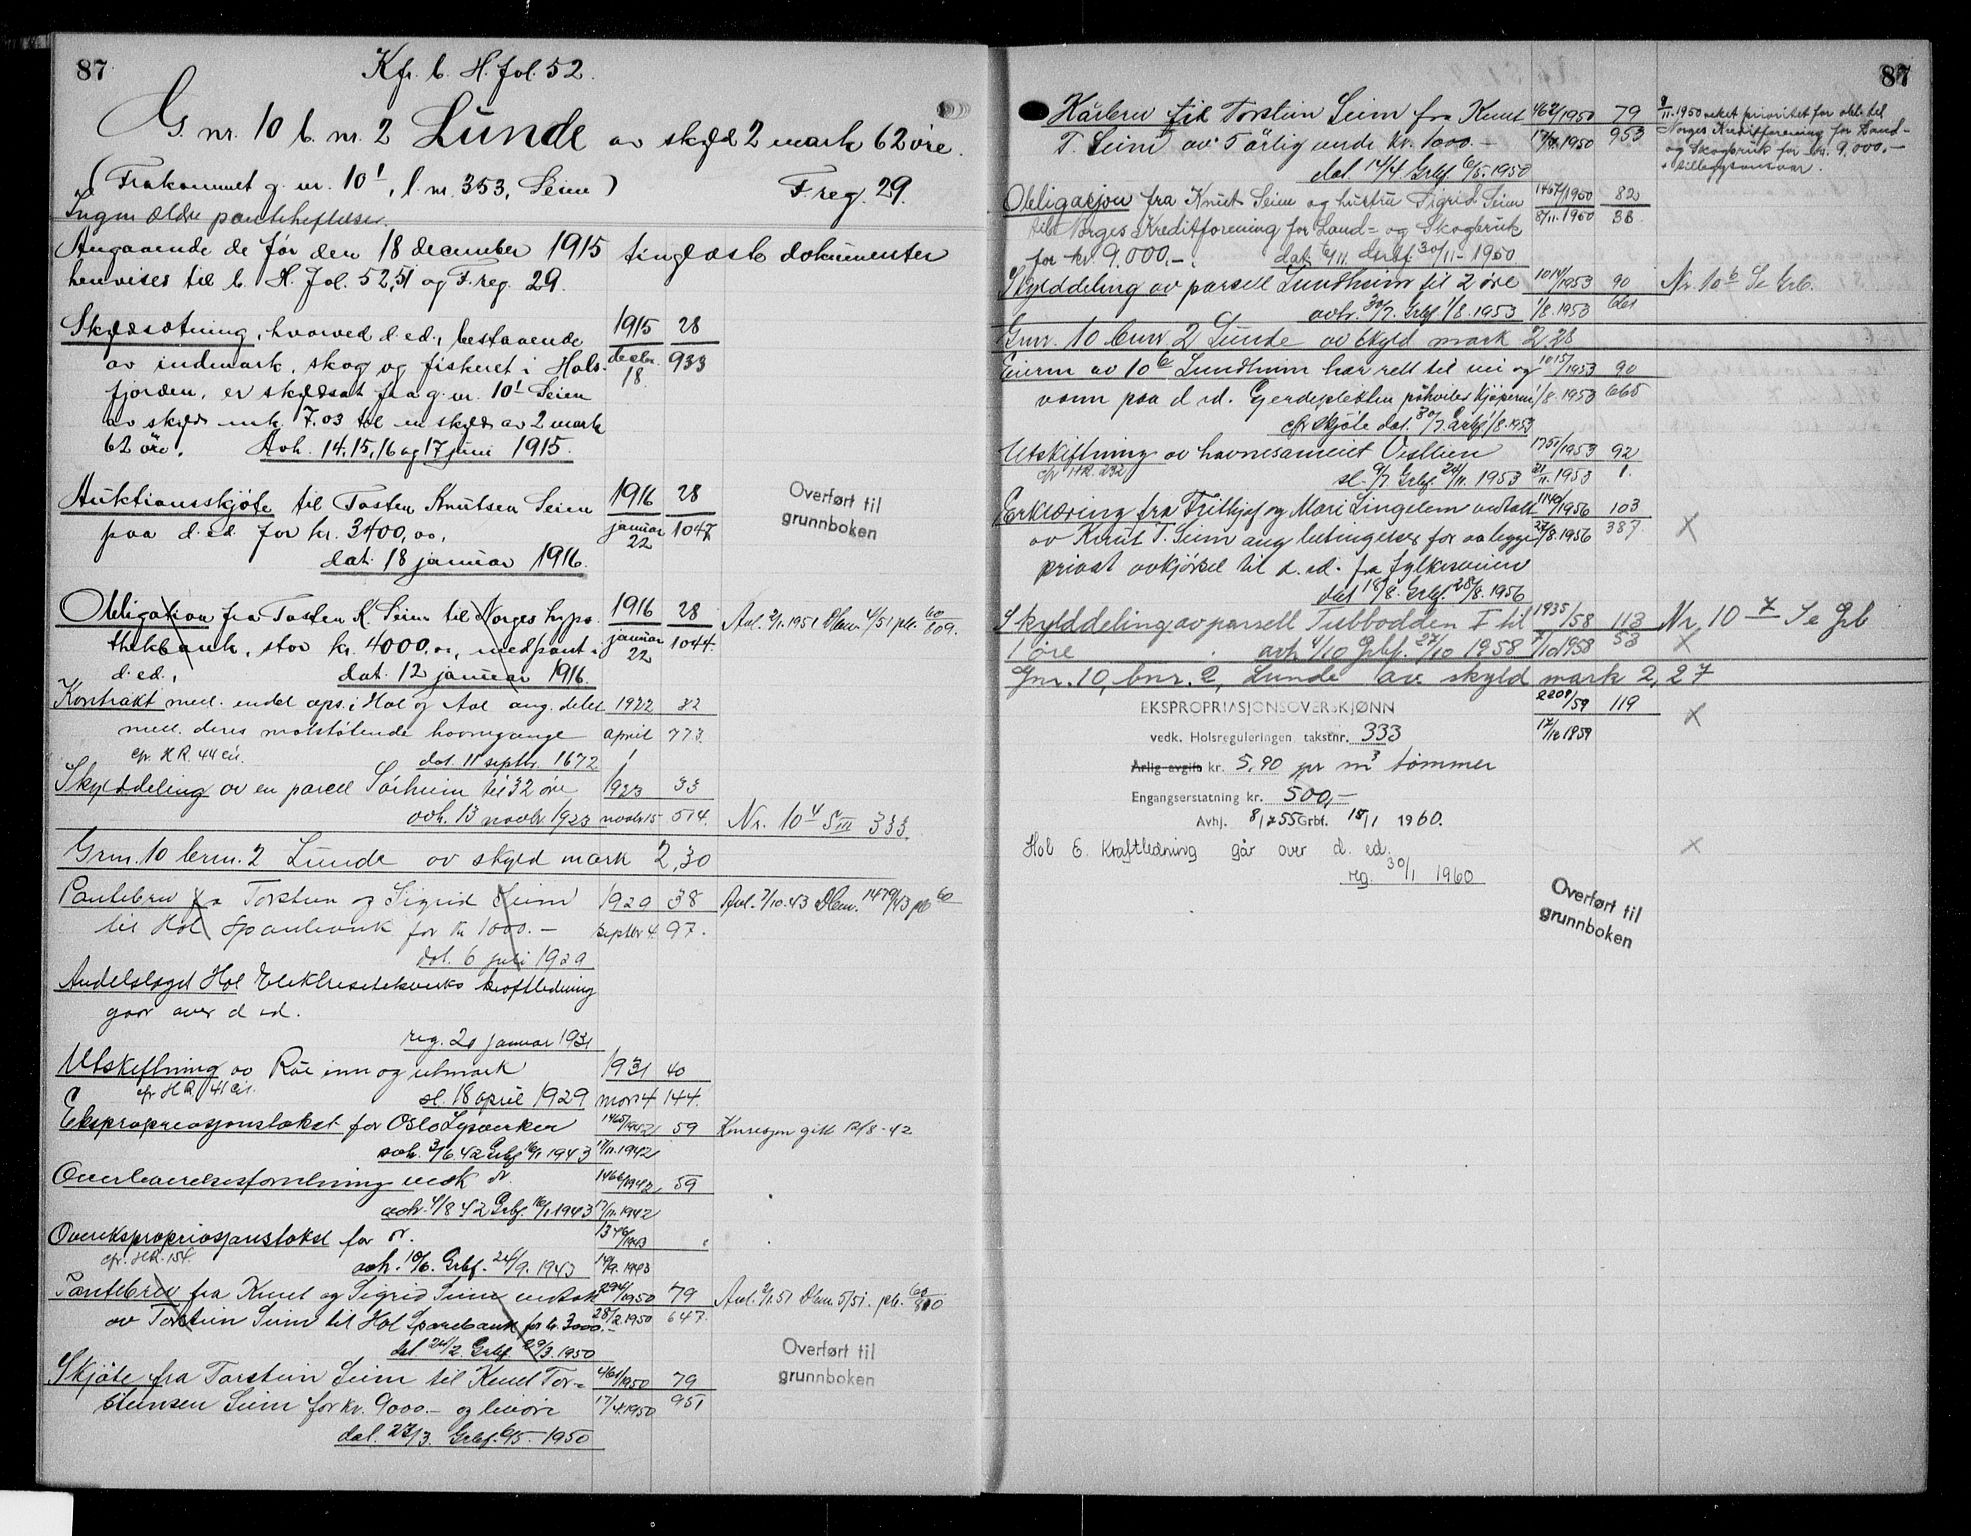 87
Kfr. b. H. fol. 52.
G. nr. 10 b. nr. 2 Lunde av skyld 2 mark 62 øre.
(Frakommet g. nr. 10¹, l. nr. 353, Seim)
F. reg. 29.
Ingen ældre panteheftelser.
Angaaende de før den 18 december 1915 tinglæste dokumenter
henvises til b. H. fol. 52, 51 og F. reg. 29.
Skyldsætning, hvorved d. ed., bestaaende 1915 28
av indmark, skog og fiskeret i Hols- decbr. 933
fjorden, er skyldsat fra g. nr. 10¹ Seim 18.
av skyld mk. 7.03 til en skyld av 2 mark
62 øre. Avh. 14, 15, 16 og 17 juni 1915.
Auktionsskjøte til Tosten Knutsen Seim 1916 28
paa d. ed. for kr. 3400,00. januar 1047
dat. 18 januar 1916. 22
Overført til
grunnboken
Obligation fra Tosten K. Seim til Norges hypo- 1916 28 Avl. 2/1. 1951 Dbnr. 4/51 pb. 60/809.
thekbank, stor kr. 4000,00, med pant i januar 1044.
d. ed., dat. 12 januar 1916. 22
Kontrakt mell. endel ops. i Hol og Aal ang. delet 1922 32
mell. deres motstøtende havnegange april 773.
cfr. H R. 44 cit. dat. 11 septbr. 1672 1
Skylddeling av en parcel Sørheim til 32 øre 1923 33
avh. 13 novbr 1923 novbr 15 514. Nr. 10⁴ S III 333.
Grnr. 10 brnr. 2 Lunde av skyld mark 2,30
Pantebrev fra Torstein og Sigrid Seim 1929 38 Avl. 7/10. 43 Dbnr. 1479/43 pb 60
til Hol Sparebank for kr 1000.- septbr 4. 97.
dat. 6 juli 1929
Andelslaget Hol Elektrisitetsverks kraftledning
gaar over d ed.
reg. 20 januar 1931
Utskiftning av Rue inn og utmark 1931 40
cfr H R. 41 cit. sl. 18 april 1929 mars 4 144.
Ekspropriasjonstakst for Oslo Lysverker 1465/1942 59 Konsesjon gitt 12/8-42
avh. 3/6. 42 Grbf 16/1 1943 17/11. 1942
Overleverelsesforretning vedk dr. 1466/1942 59
avh. 4/8 42 Grbf. 16/1 1943 17/11. 1942
Overekspropriasjonstakst for dr. 1346/1943
cfr. H R. 154. avh. 10/6. Grbf. 24/9. 1943 14/9. 1943
Pantebrev fra Knut og Sigrid Seim vedtatt 294/1950 79 Avl. 2/1. 51 Dbnr. 5/51. pb. 60/810
av Torstein Seim til Hol Sparebank for kr. 3000.- 28/2. 1950 647.
dat 24/2. Grbf. 29/3. 1950
Overført til
grunnboken
Skjøte fra Torstein Seim til Knut Tor- 461/1950 79
steinsen Seim for kr. 9000.- og livøre 17/4. 1950 951
dat. 27/3. Grbf. 6/5. 1950
87
Kårbrev til Torstein Seim fra Knut 462/1950 79 9/11. 1950 veket prioritet for obl. til
T. Seim av 5 årlig verde kr. 1000.- 17/4. 1950 953 Norges Kreditforening for Land-
og Skogbruk for kr. 9.000,-
dat. 14/4. Grbf. 6/5. 1950 + tilleggsansvar.
Obligasjon fra Knut Seim og hustru Sigrid Seim 1467/1950 82
til Norges Kreditforening for Land- og Skogbruk 8/11. 1950 38
for kr. 9.000,-. dat. 6/11. Grbf. 30/11-1950
Skylddeling av parsell Lundheim til 2 øre 1014/1953 90 Nr. 10⁶ Se Grb.
avh. 30/7. Grbf. 1/8. 1953 1/8. 1953 661
Gnr. 10 bnr 2 Lunde av skyld mark 2,28
Eieren av 10⁶ Lundheim har rett til vei og 1015/1953 90
vann paa d. ed. Gjerdeplikten påhviler kjøperen 1/8. 1953 665
cfr skjøte dat. 30/7. Grbf. 1/8. 1953
Utskiftning av havnesameiet Vestlien 1751/1953 92
cfr HR. 232 sl. 9/7. Grbf. 24/11. 1953 21/11. 1953 1.
Erklæring fra Fritthjof og Mari Lingelem vedtatt 1140/1956 103
av Knut T. Seim ang. betingelser for aa legge 27/8. 1956 387 X
privat avkjørsel til d. ed. fra fylkesveien
dat 18/8. Grbf. 28/8. 1956
Skylddeling av parsell Tubbodden I til 1935/58 113 Nr. 10⁷ Se Grb
1 øre avh 4/10 Grbf. 27/10 1958 7/10 1958 53 X
Gnr. 10, bnr. 2, Lunde av skyld mark 2,27
EKSPROPRIASJONSOVERSKJØNN 2209/59 119 X
vedk. Holsreguleringen takstnr. 333 17/12 1959
Årlig avgift kr. 5,90 pr m³ tømmer
Engangserstatning kr. 500,-
Avhj. 8/7 55 Grbf. 15/1 1960.
Hol E. kraftledning går over d. ed. X
reg. 30/1 1960
Overført til
grunnboken